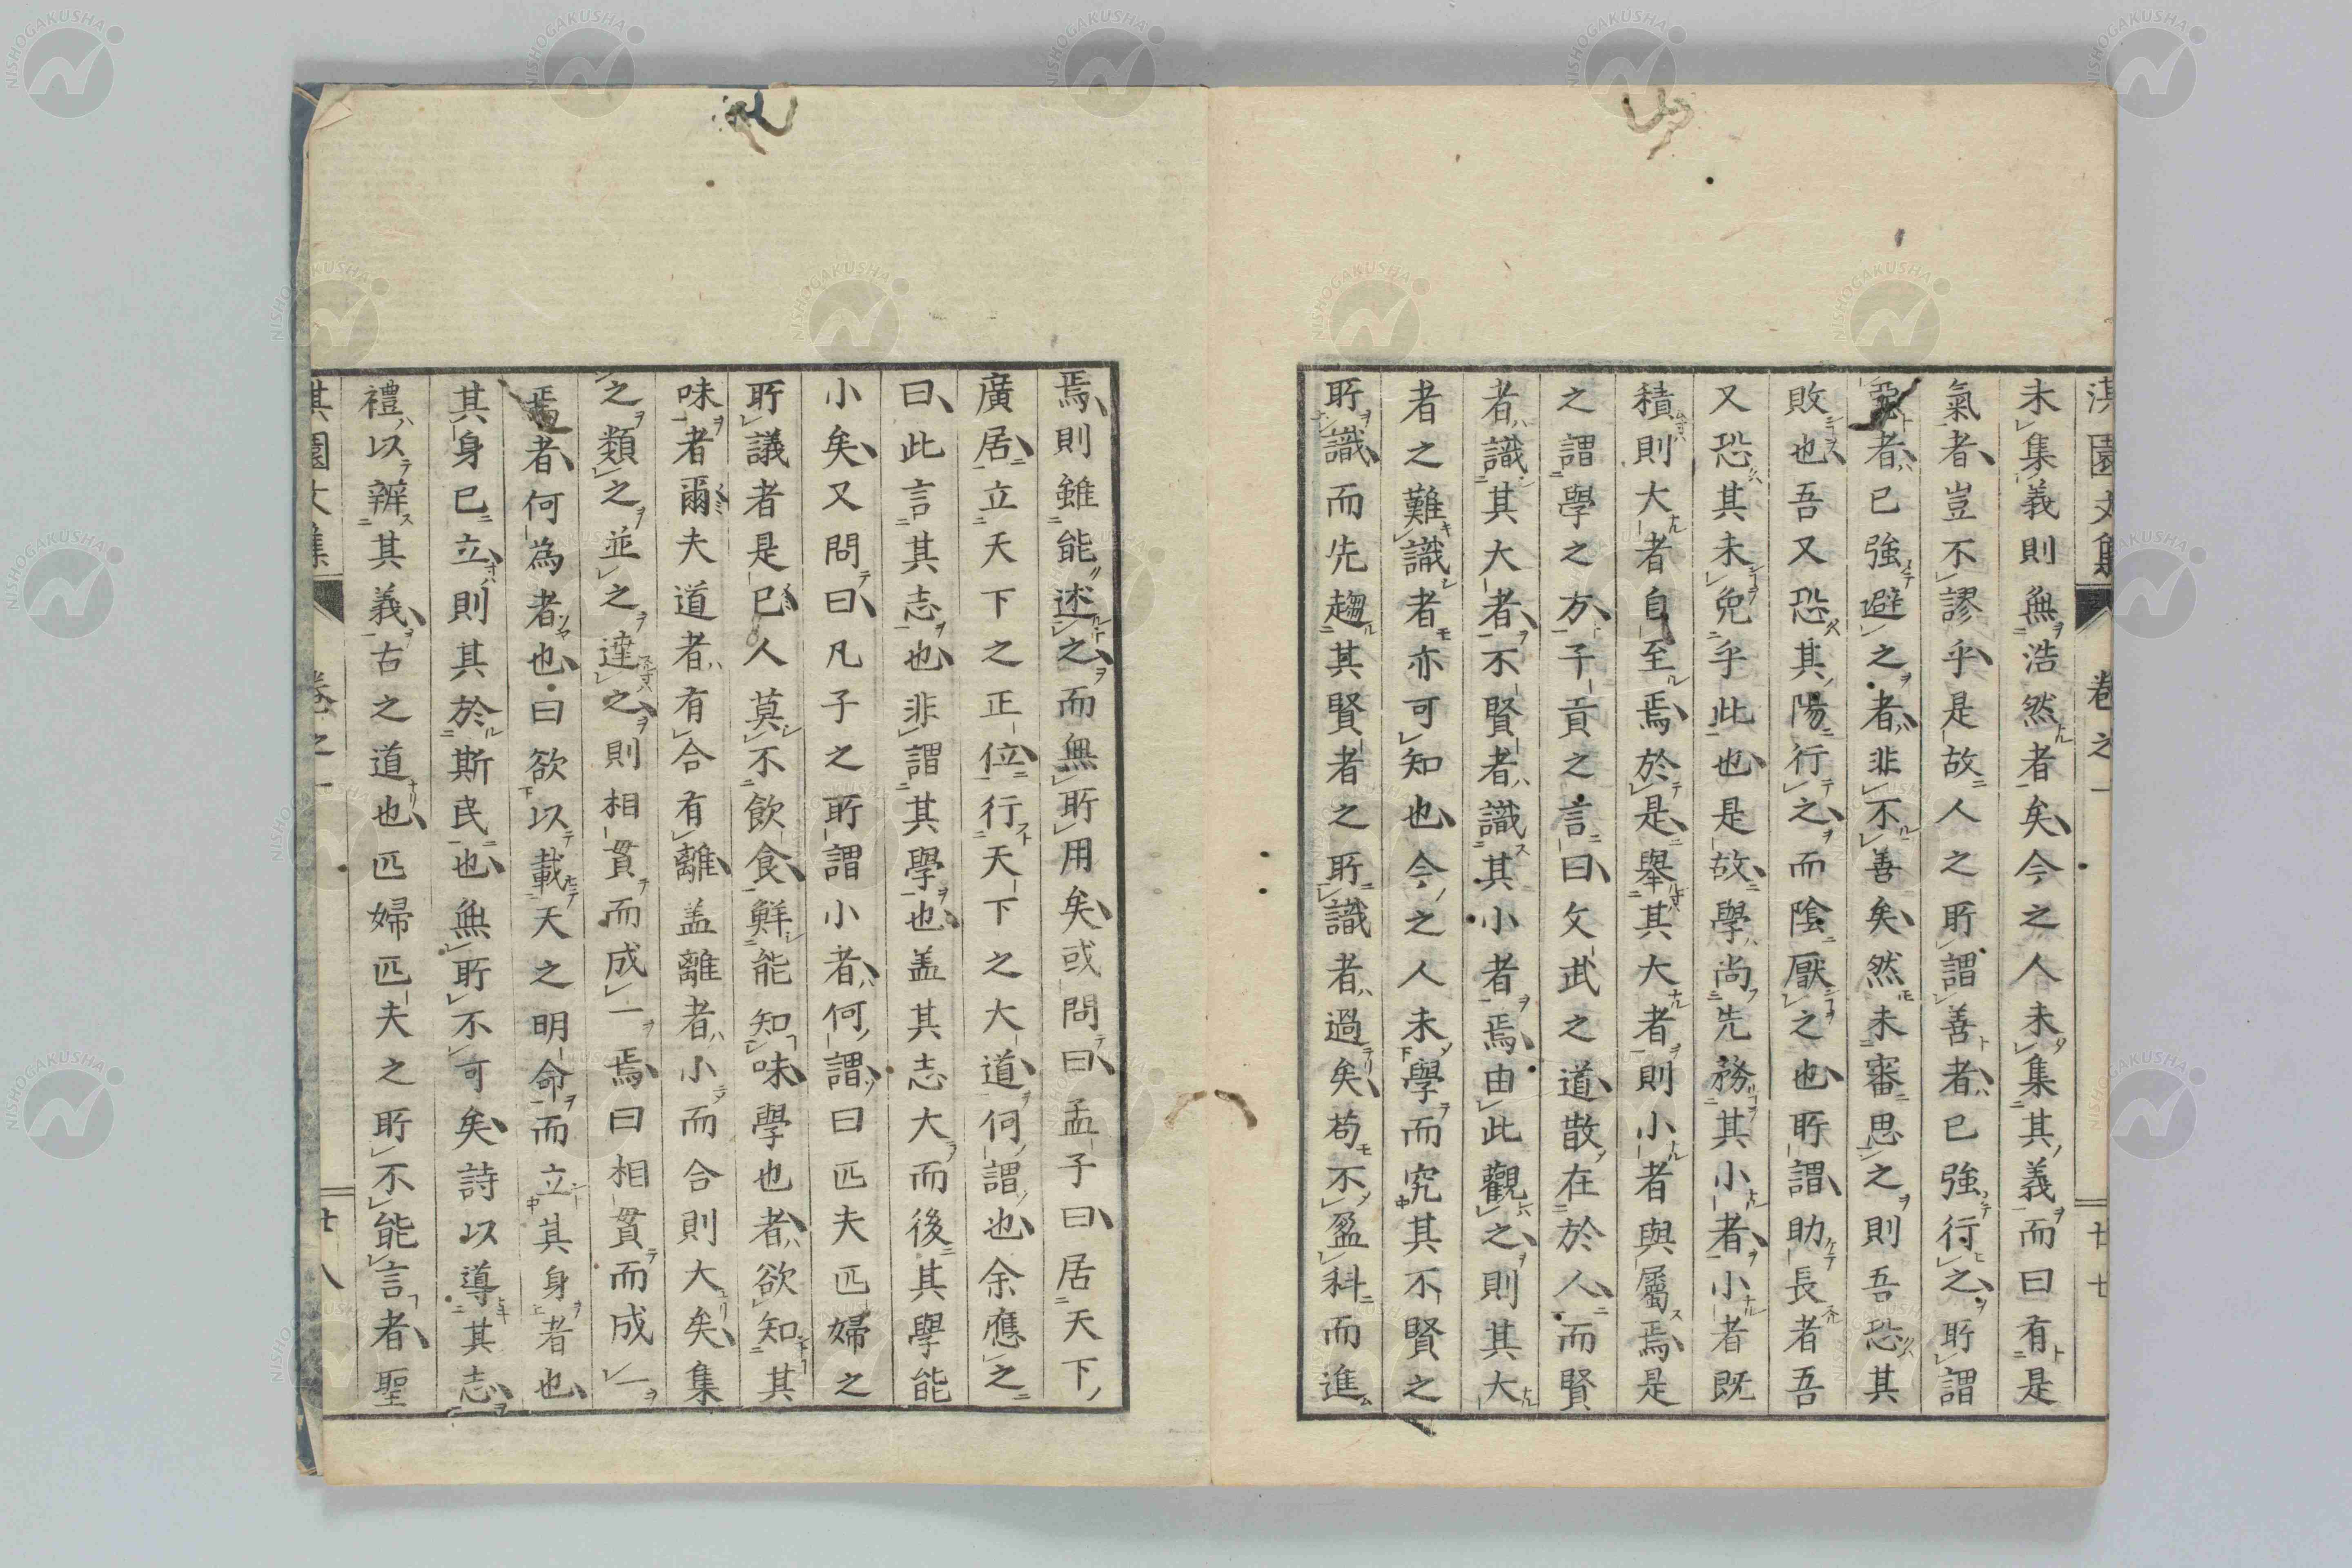 淇園文集 卷之一 廿七
未集義則無浩然者矣今之人未集其義而曰有是
氣者豈不謬乎是故人之所謂善者已強行之所謂
惡者已強避之者非不善矣然未審思之則吾恐其
敗也吾又恐其陽行之而陰厭之也所謂助長者吾
又恐其未免乎此也是故學尚先務其小者小者既
積則大者自至焉於是舉其大者則小者與屬焉是
之謂學之方子貢之言曰文武之道散在於人而賢
者識其大者不賢者識其小者焉由此觀之則其大
者之難識者亦可知也今之人未學而究其不賢之
所識而先趨其賢者之所識者過矣苟不盈科而進
焉則雖能述之而無所用矣或問曰孟子曰居天下
廣居立天下之正位行天下之大道何謂也余應之
曰此言其志也非謂其學也盖其志大而後其學能
小矣又問曰凡子之所謂小者何謂曰匹夫匹婦之
所議者是已人莫不飲食鮮能知味學也者欲知其
味者爾夫道者有合有離盖離者小而合則大矣集
之類之並之達之則相貫而成一焉曰相貫而成一
焉者何為者也曰欲以載天之明命而立其身者也
其身已立則其於斯民也無所不可矣詩以導其志
禮以辨其義古之道也匹婦匹夫之所不能言者聖
淇園文集 卷之一 廿八
NISHOGAKUSHA